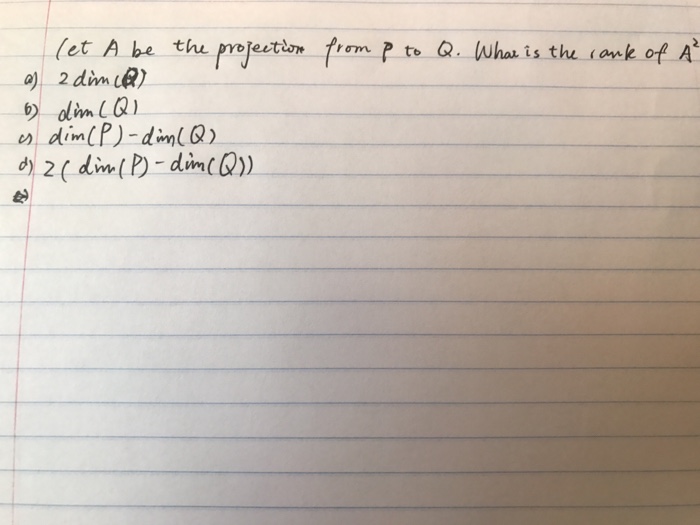 let A be the projection from P to Q. What is the rank of A²
a) 2 dim(Q)
b) dim(Q)
c) dim(P)-dim(Q)
d) 2(dim(P)-dim(Q))